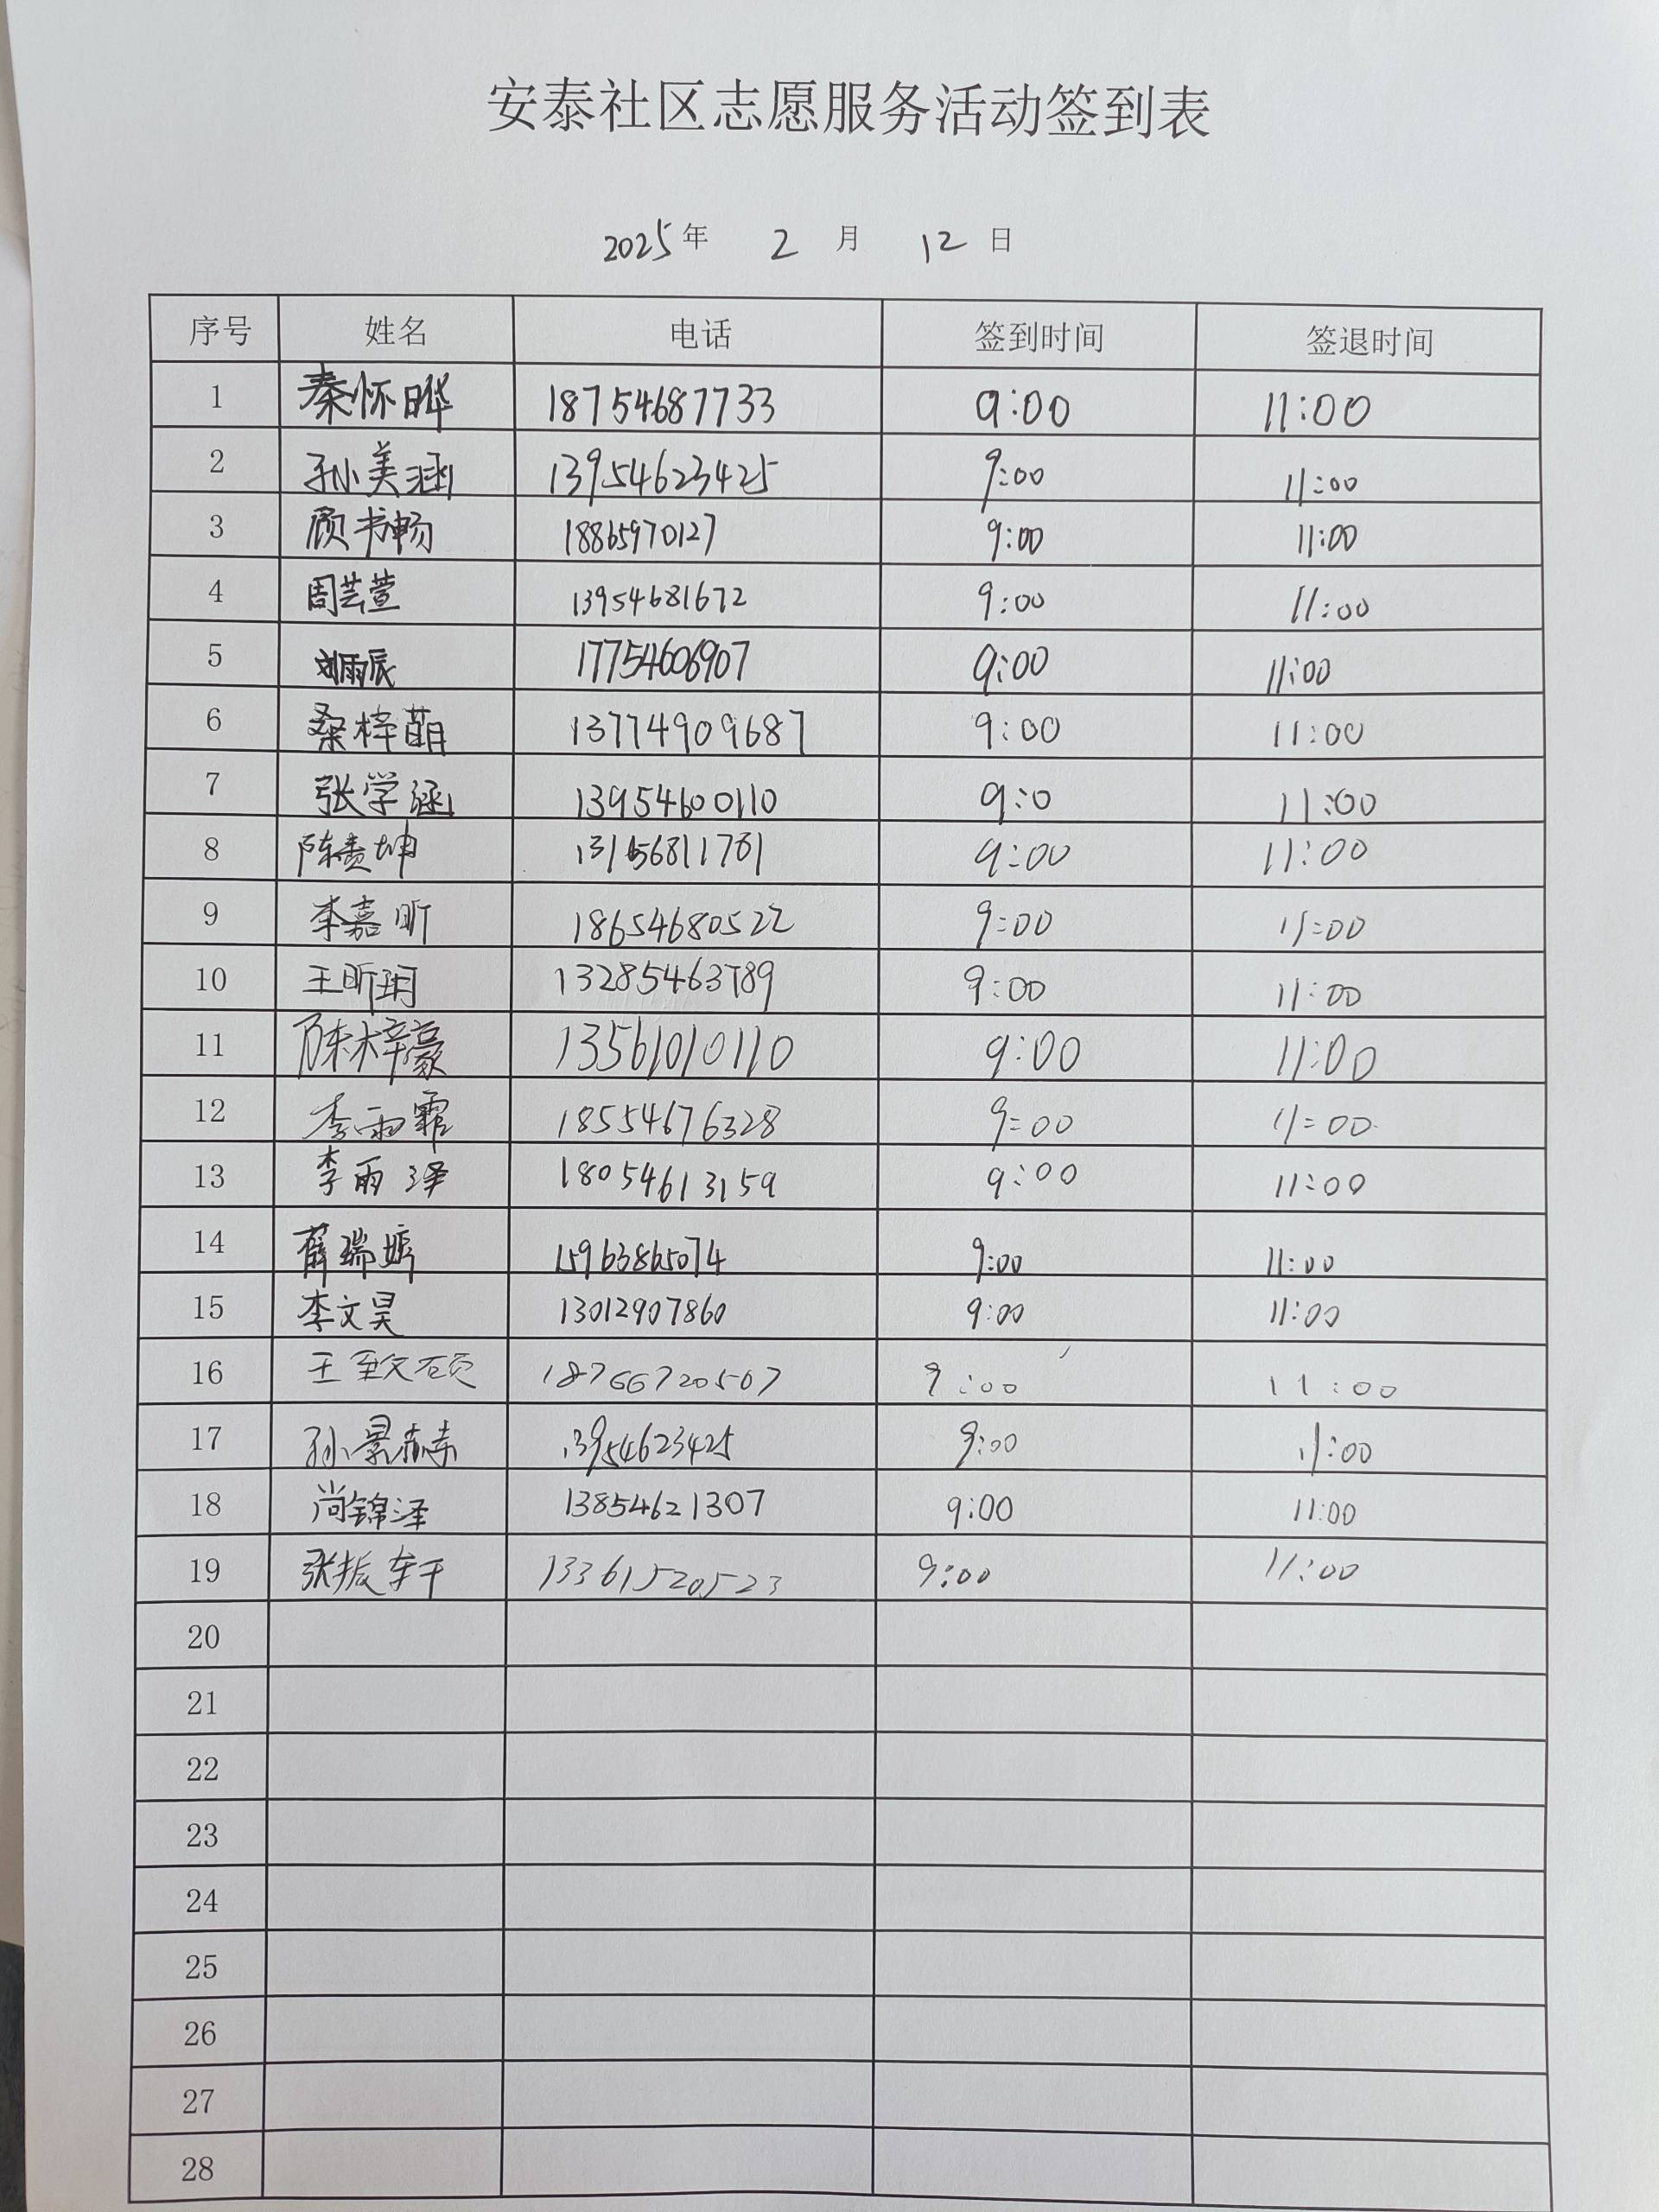 安泰社区志愿服务活动签到表
2025年 2 月 12 日
序号 姓名 电话 签到时间 签退时间
1 秦怀晔 18754687733 9:00 11:00
2 孙美涵 13954623425 9:00 11:00
3 顾书畅 18865970127 9:00 11:00
4 周芸萱 13954681672 9:00 11:00
5 刘雨辰 17754606907 9:00 11:00
6 桑梓萌 13774909687 9:00 11:00
7 张学涵 13954600110 9:0 11:00
8 陈贵坤 13156811781 9:00 11:00
9 李嘉昕 18654680522 9:00 11:00
10 王昕玥 13285463789 9:00 11:00
11 陈梓豪 13561010110 9:00 11:00
12 李雨霏 18554676328 9:00 11:00
13 李雨泽 18054613159 9:00 11:00
14 薛瑞婷 15963865074 9:00 11:00
15 李文昊 13012907860 9:00 11:00
16 王致硕 18766720507 9:00 11:00
17 孙景赫 13954623425 9:00 11:00
18 尚锦泽 13854621307 9:00 11:00
19 张振轩 13361520523 9:00 11:00
20
21
22
23
24
25
26
27
28